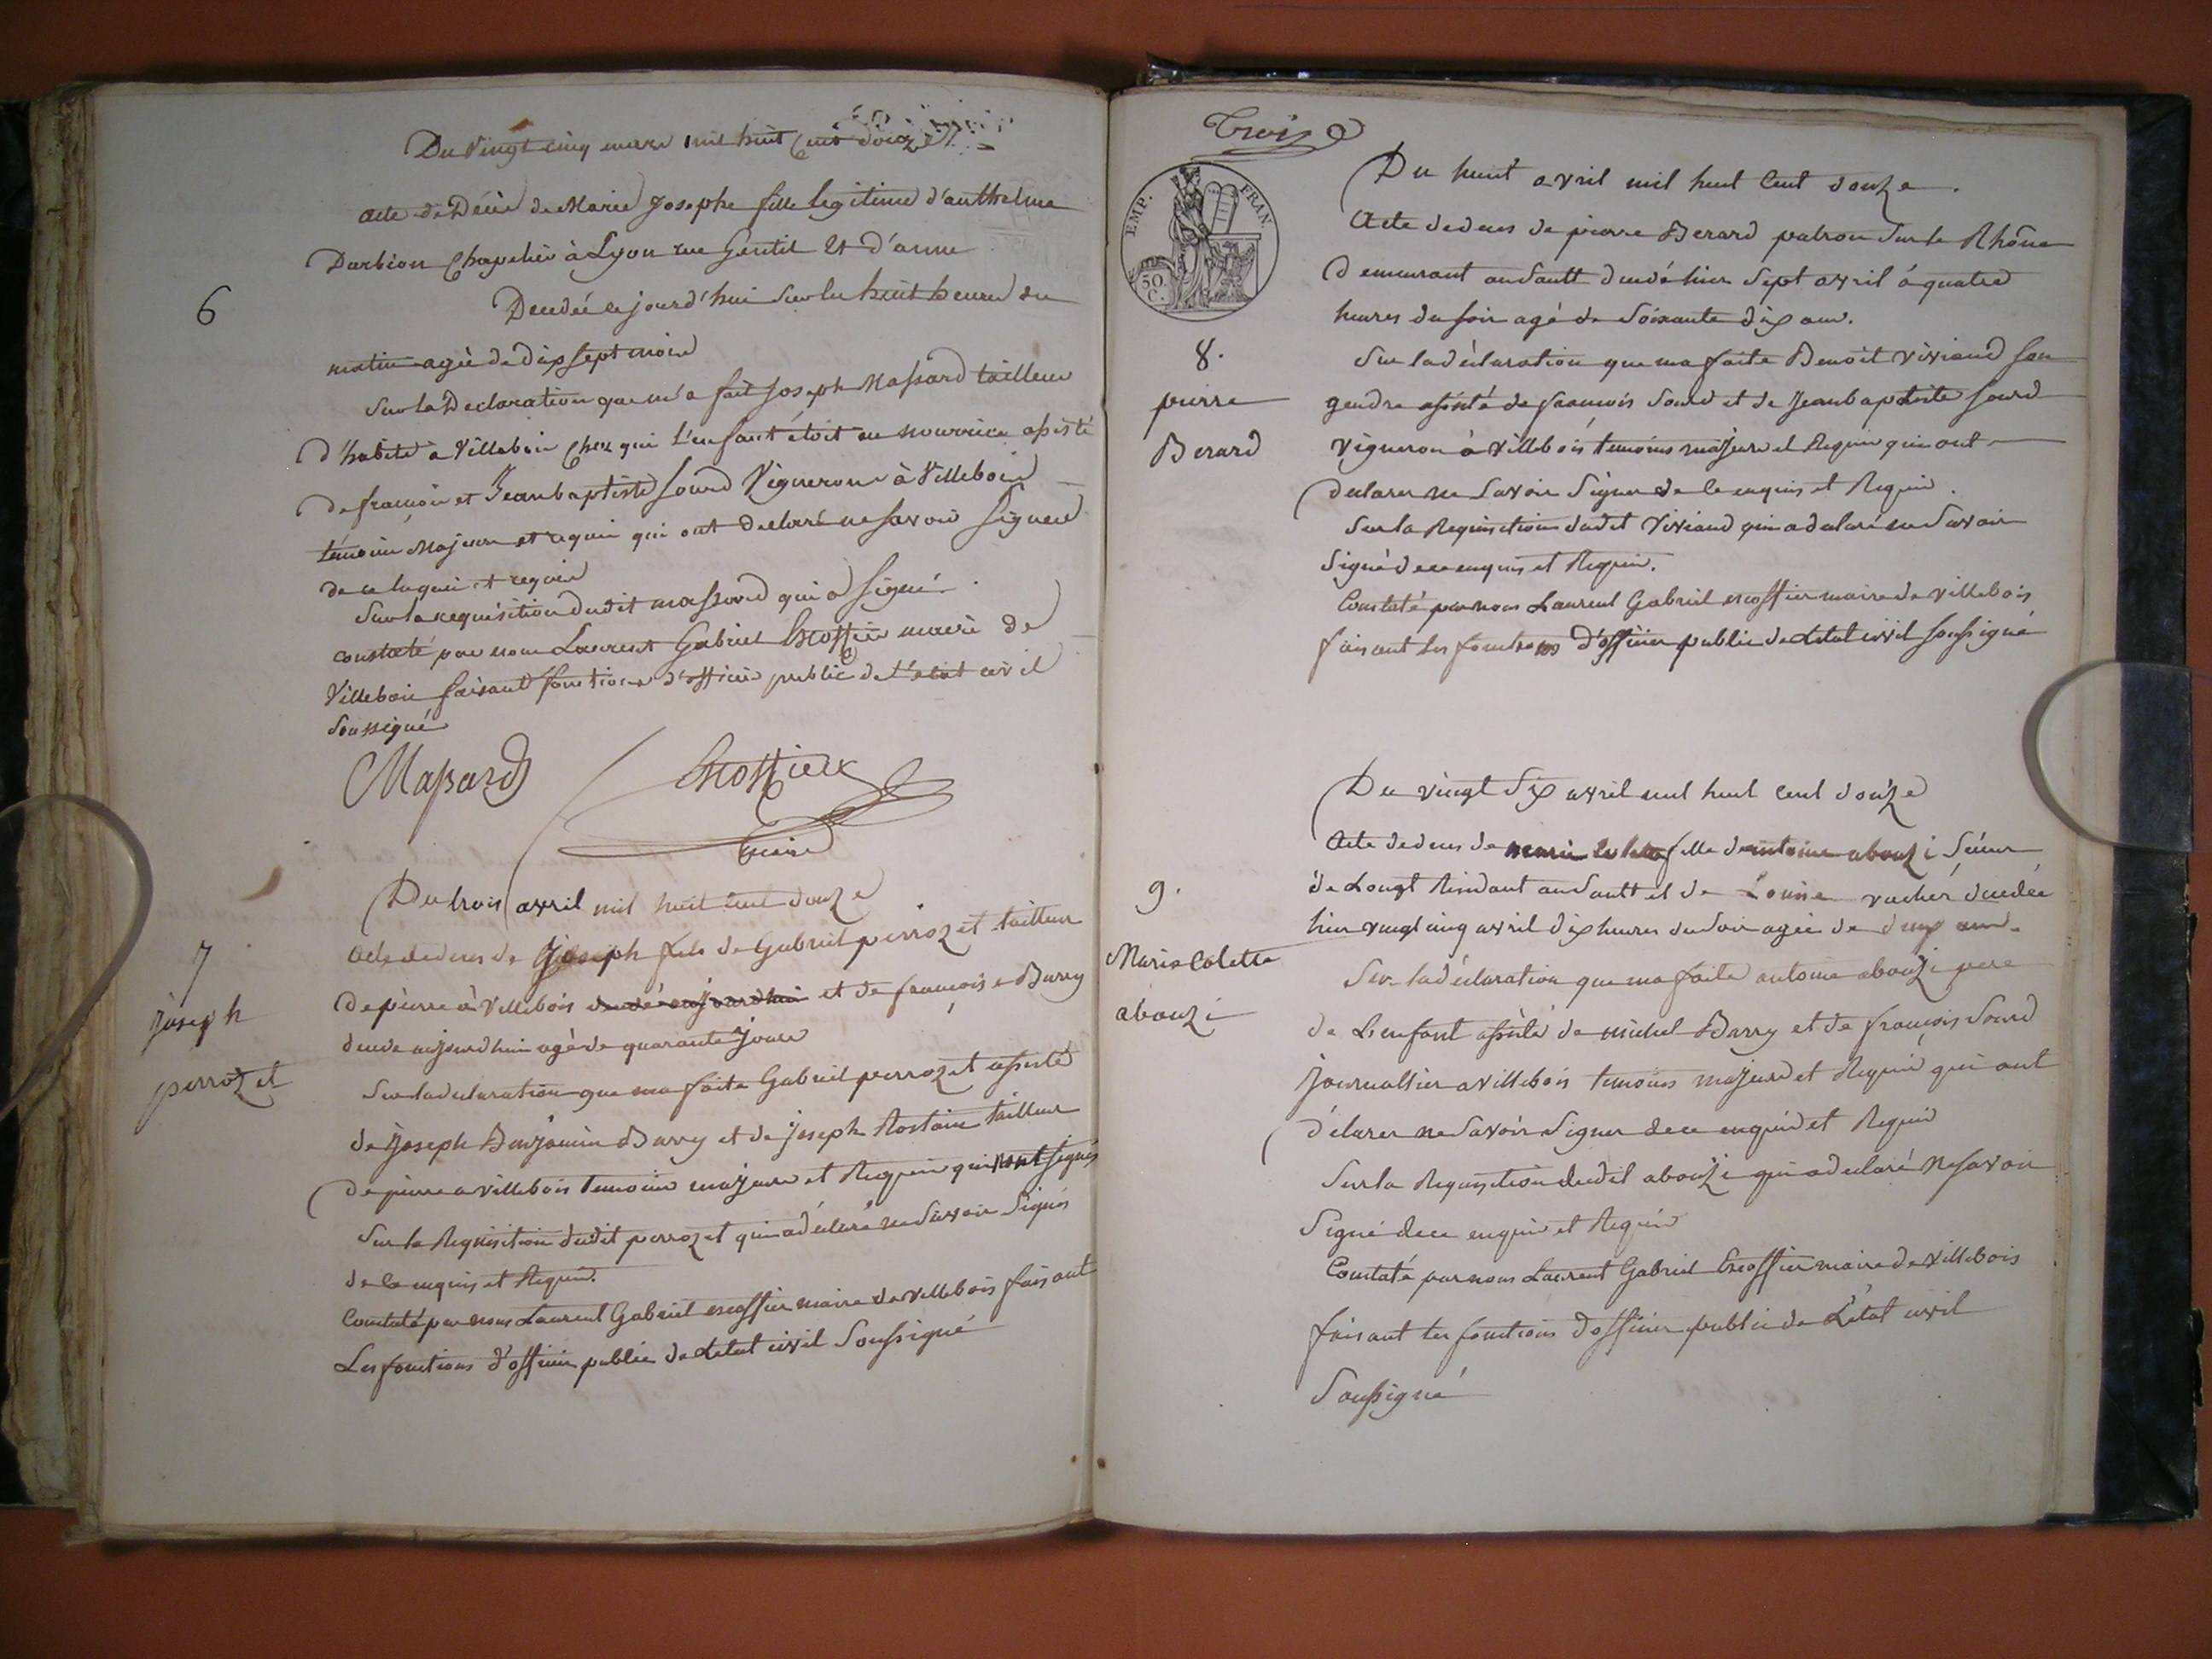 Du vingt cinq mars mil huit cent douze
acte de Décès de Marie Josephe fille legitime d'anthelme
Darbion Chapelier à Lyon rue Gentil et d'anne
6
Decedée ce jourd'hui sur les huit heures du
matin agée de dix sept mois
Sur la Declaration que m'a fait Joseph Massard tailleur
d'habits à Villebois chez qui l'enfant étoit en nourrice assisté
de françois et Jeanbaptiste Sourd Vignerons à Villebois
témoins Majeurs et requis qui ont declaré ne savoir signer
de ce enquis et requis
Sur la requisition dudit massard qui a signé
constaté par nous Laurent Gabriel Escoffier maire de
Villebois faisant fonctions d'officier public de l'état civil
Soussigné
Massard Escoffier
maire
Du trois avril mil huit cent douze
7
joseph
perrozet
acte de deces de Joseph fils de Gabriel perrozet tailleur
de pierre à Villebois decedé aujourdhui et de françoise Barry
decede aujourdhui agé de quarante jours
Sur la declaration que ma faite Gabriel perrozet assisté
de Joseph Benjamin Barry et de joseph Rostain tailleur
de pierre a villebois temoins majeurs et Requis qui ont signés
Sur la Requisition dudit perrozet qui a déclaré ne Savoir Signés
de ce enquis et Requis.
Constaté par nous Laurent Gabriel escoffier maire de villebois faisant
Les fonctions d'officier public de Letat civil Soussigné
Trois
EMP. FRAN.
50
C.
Du huit avril mil huit Cent douze.
Acte de deces de pierre Berard patron Sur le Rhône
demeurant au Sault decedé hier Sept avril à quatre
heures du soir agé de Soixante dix ans.
8.
pierre
Berard
Sur la déclaration que ma faite Benoit Viviand son
gendre assisté de françois Sourd et de Jeanbaptiste Sourd
Vigneron à Villebois temoins majeurs et Requis qui ont
declarer ne Savoir Signer de ce enquis et Requis.
Sur la Requisition dudit Viviand qui a declaré ne Savoir
Signé de ce enquis et Requis.
Constaté par nous Laurent Gabriel escoffier maire de villebois
faisant les fonctions d'officier public de Letat civil soussigné
Du vingt Six avril mil huit cent douze
Acte de deces de marie colette fille de antoine abouzi Sieur
de Lougt Residant au Sault et de Louise vacher decedée
hier vingt cinq avril dix heures du Soir agée de deux ans.
9.
Marie Colette
abouzi
Sur la déclaration que ma faite antoine abouzi pere
de L'enfant assisté de michel Barry et de françois Sourd
journallier a Villebois temoins majeurs et Requis qui ont
déclarer ne Savoir Signer de ce enquis et Requis
Sur la Requisition dudit abouzi qui a declaré ne Savoir
Signé de ce enquis et Requis
Constaté par nous Laurent Gabriel Escoffier maire de Villebois
faisant les fonctions d'officier public de L'état civil
Soussigné